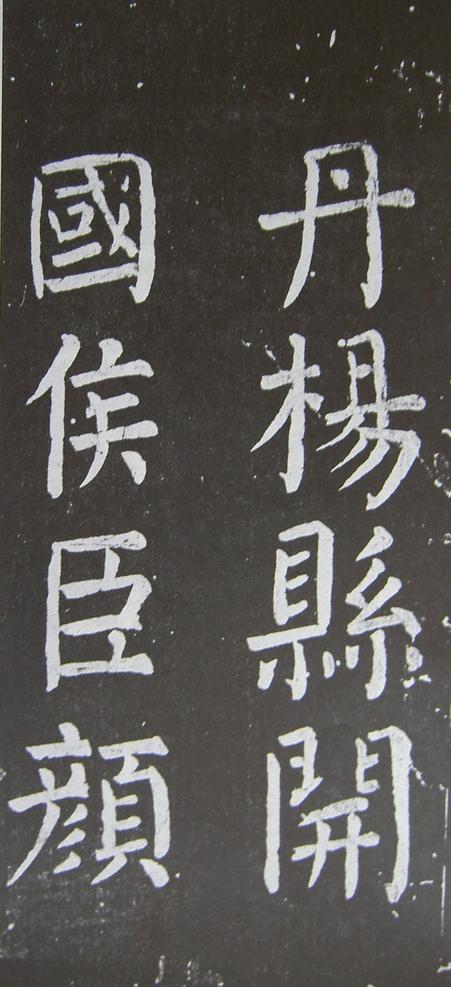 丹楊縣開
國侯臣顏